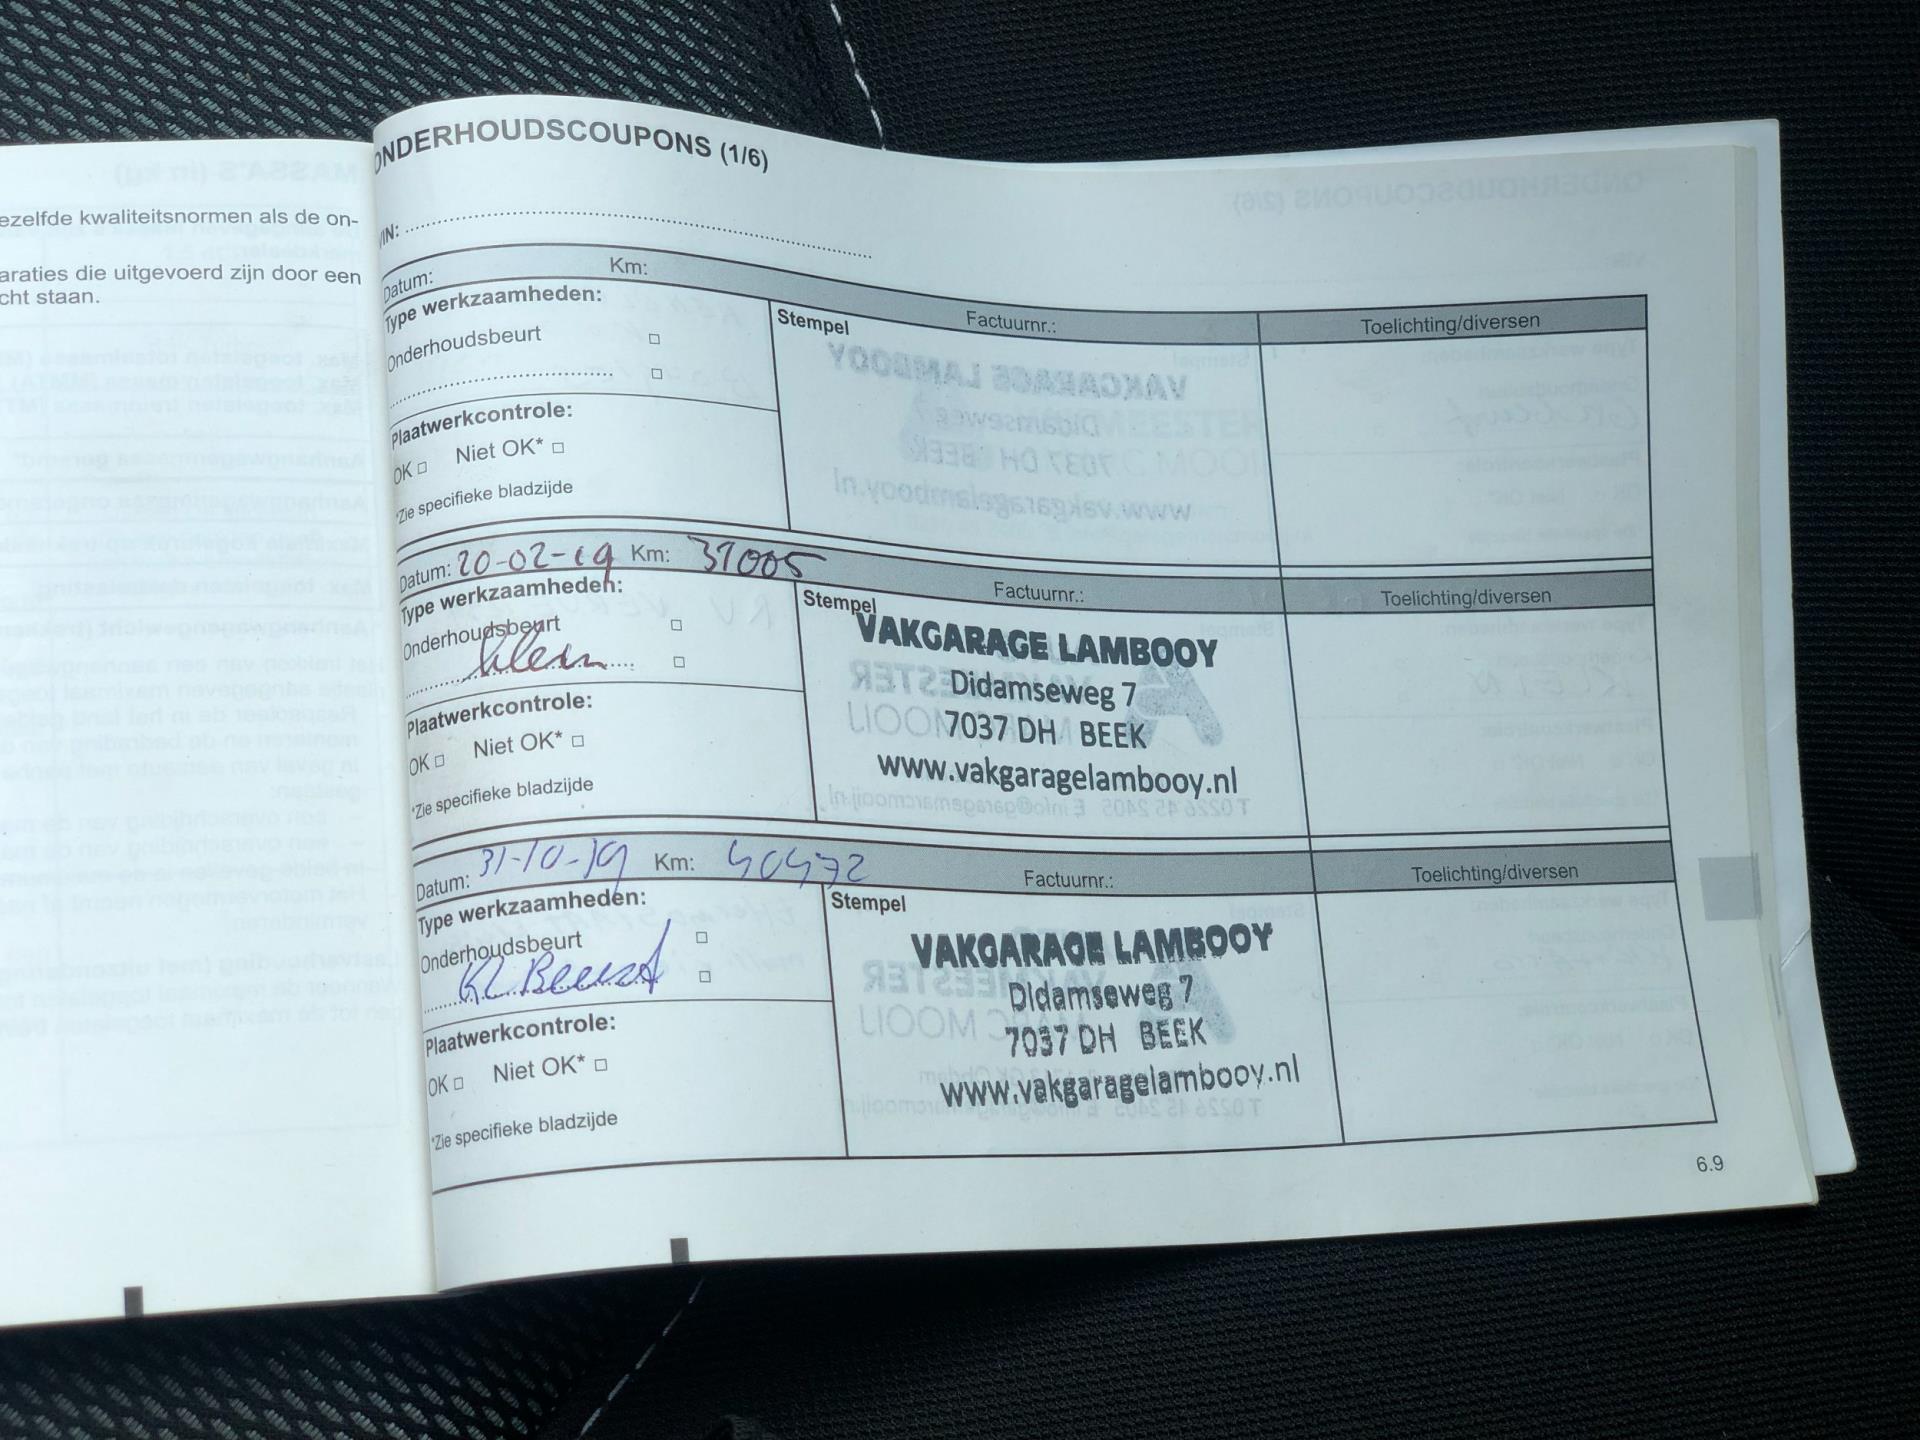 ezelfde kwaliteitsnormen als de on-
araties die uitgevoerd zijn door een
cht staan.
ONDERHOUDSCOUPONS (1/6)
VIN:
Datum: Km: Factuurnr.: Toelichting/diversen
Type werkzaamheden:
Stempel
Onderhoudsbeurt □
□
Plaatwerkcontrole:
OK □ Niet OK* □
*Zie specifieke bladzijde
VAKGARAGE LAMBOOY
Didamseweg 7
7037 DH BEEK
www.vakgaragelambooy.nl
Datum: 20-02-19 Km: 31005 Factuurnr.: Toelichting/diversen
Type werkzaamheden:
Stempel
Onderhoudsbeurt □
klein □
Plaatwerkcontrole:
OK □ Niet OK* □
*Zie specifieke bladzijde
VAKGARAGE LAMBOOY
Didamseweg 7
7037 DH BEEK
www.vakgaragelambooy.nl
Datum: 31-10-19 Km: 40472 Factuurnr.: Toelichting/diversen
Type werkzaamheden:
Stempel
Onderhoudsbeurt □
Kl Beurt □
Plaatwerkcontrole:
OK □ Niet OK* □
*Zie specifieke bladzijde
VAKGARAGE LAMBOOY
Didamseweg 7
7037 DH BEEK
www.vakgaragelambooy.nl
6.9